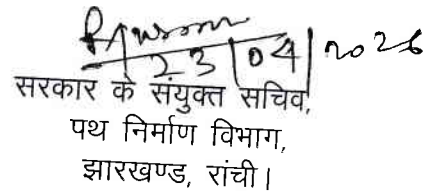 23/04/2026
सरकार के संयुक्त सचिव,
पथ निर्माण विभाग,
झारखण्ड, रांची।